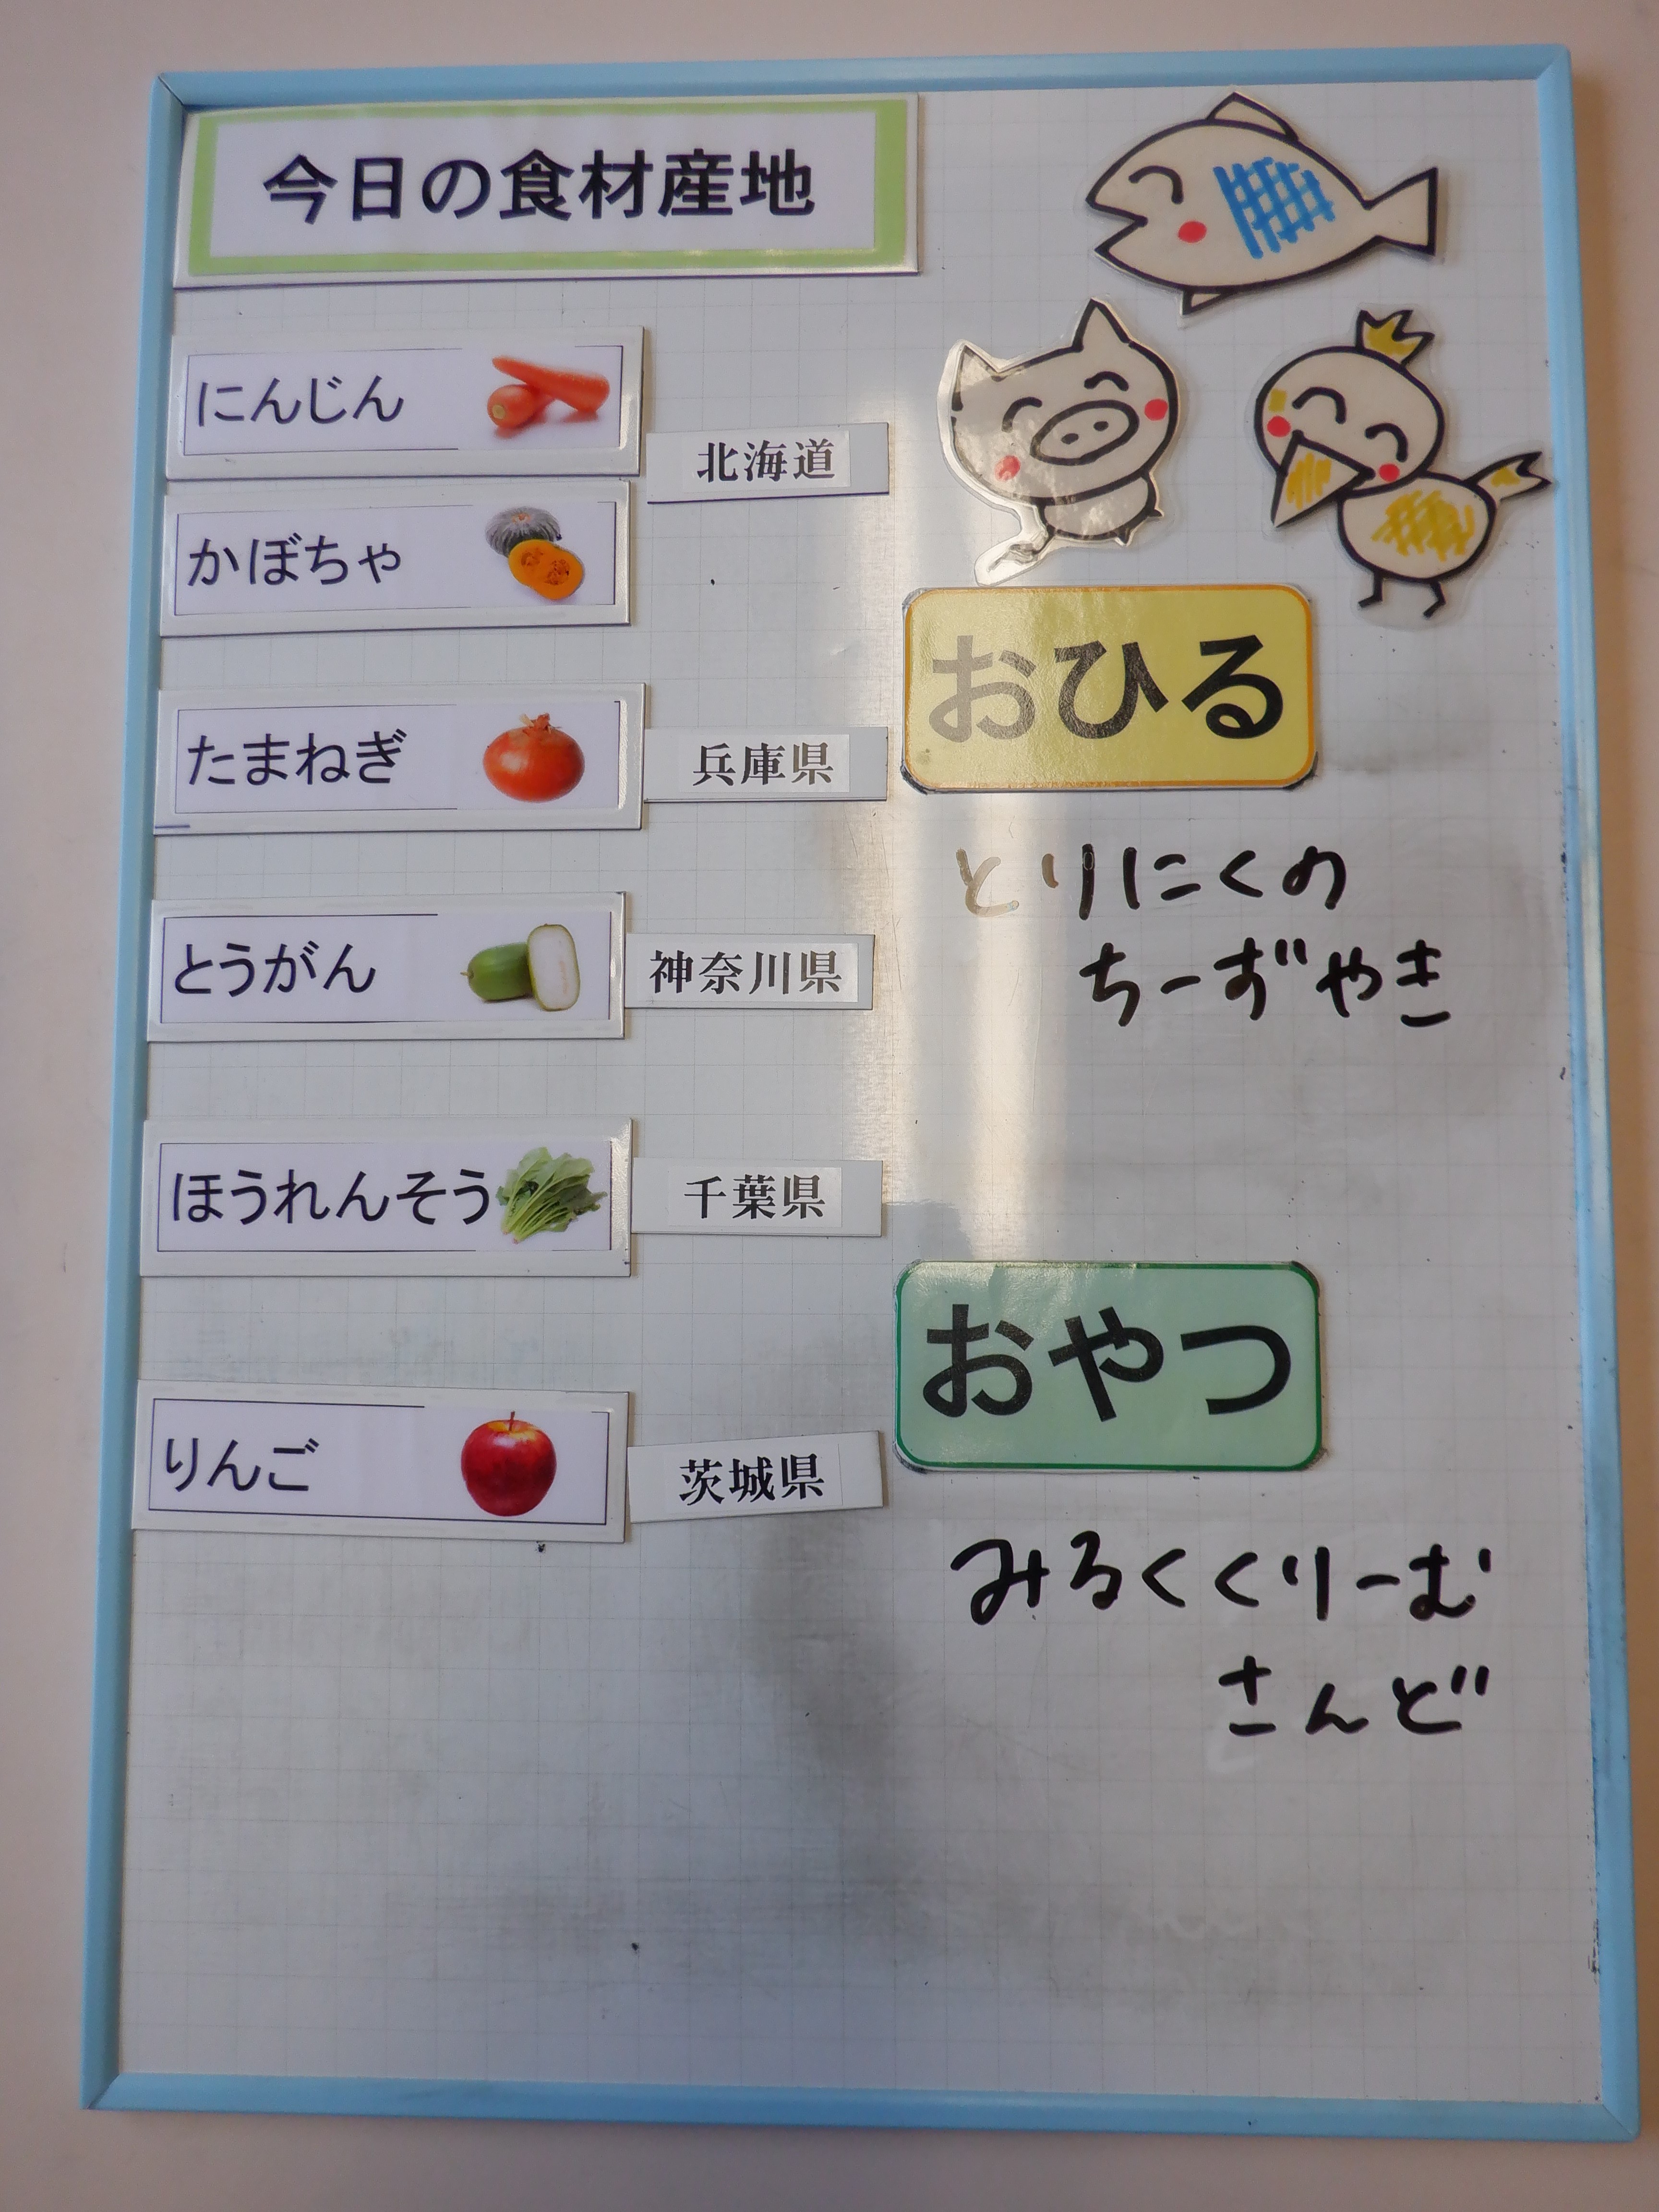 今日の食材産地
にんじん
北海道
かぼちゃ
たまねぎ
兵庫県
とうがん
神奈川県
ほうれんそう
千葉県
りんご
茨城県
おひる
とりにくの
ちーずやき
おやつ
みるくくりーむ
さんど